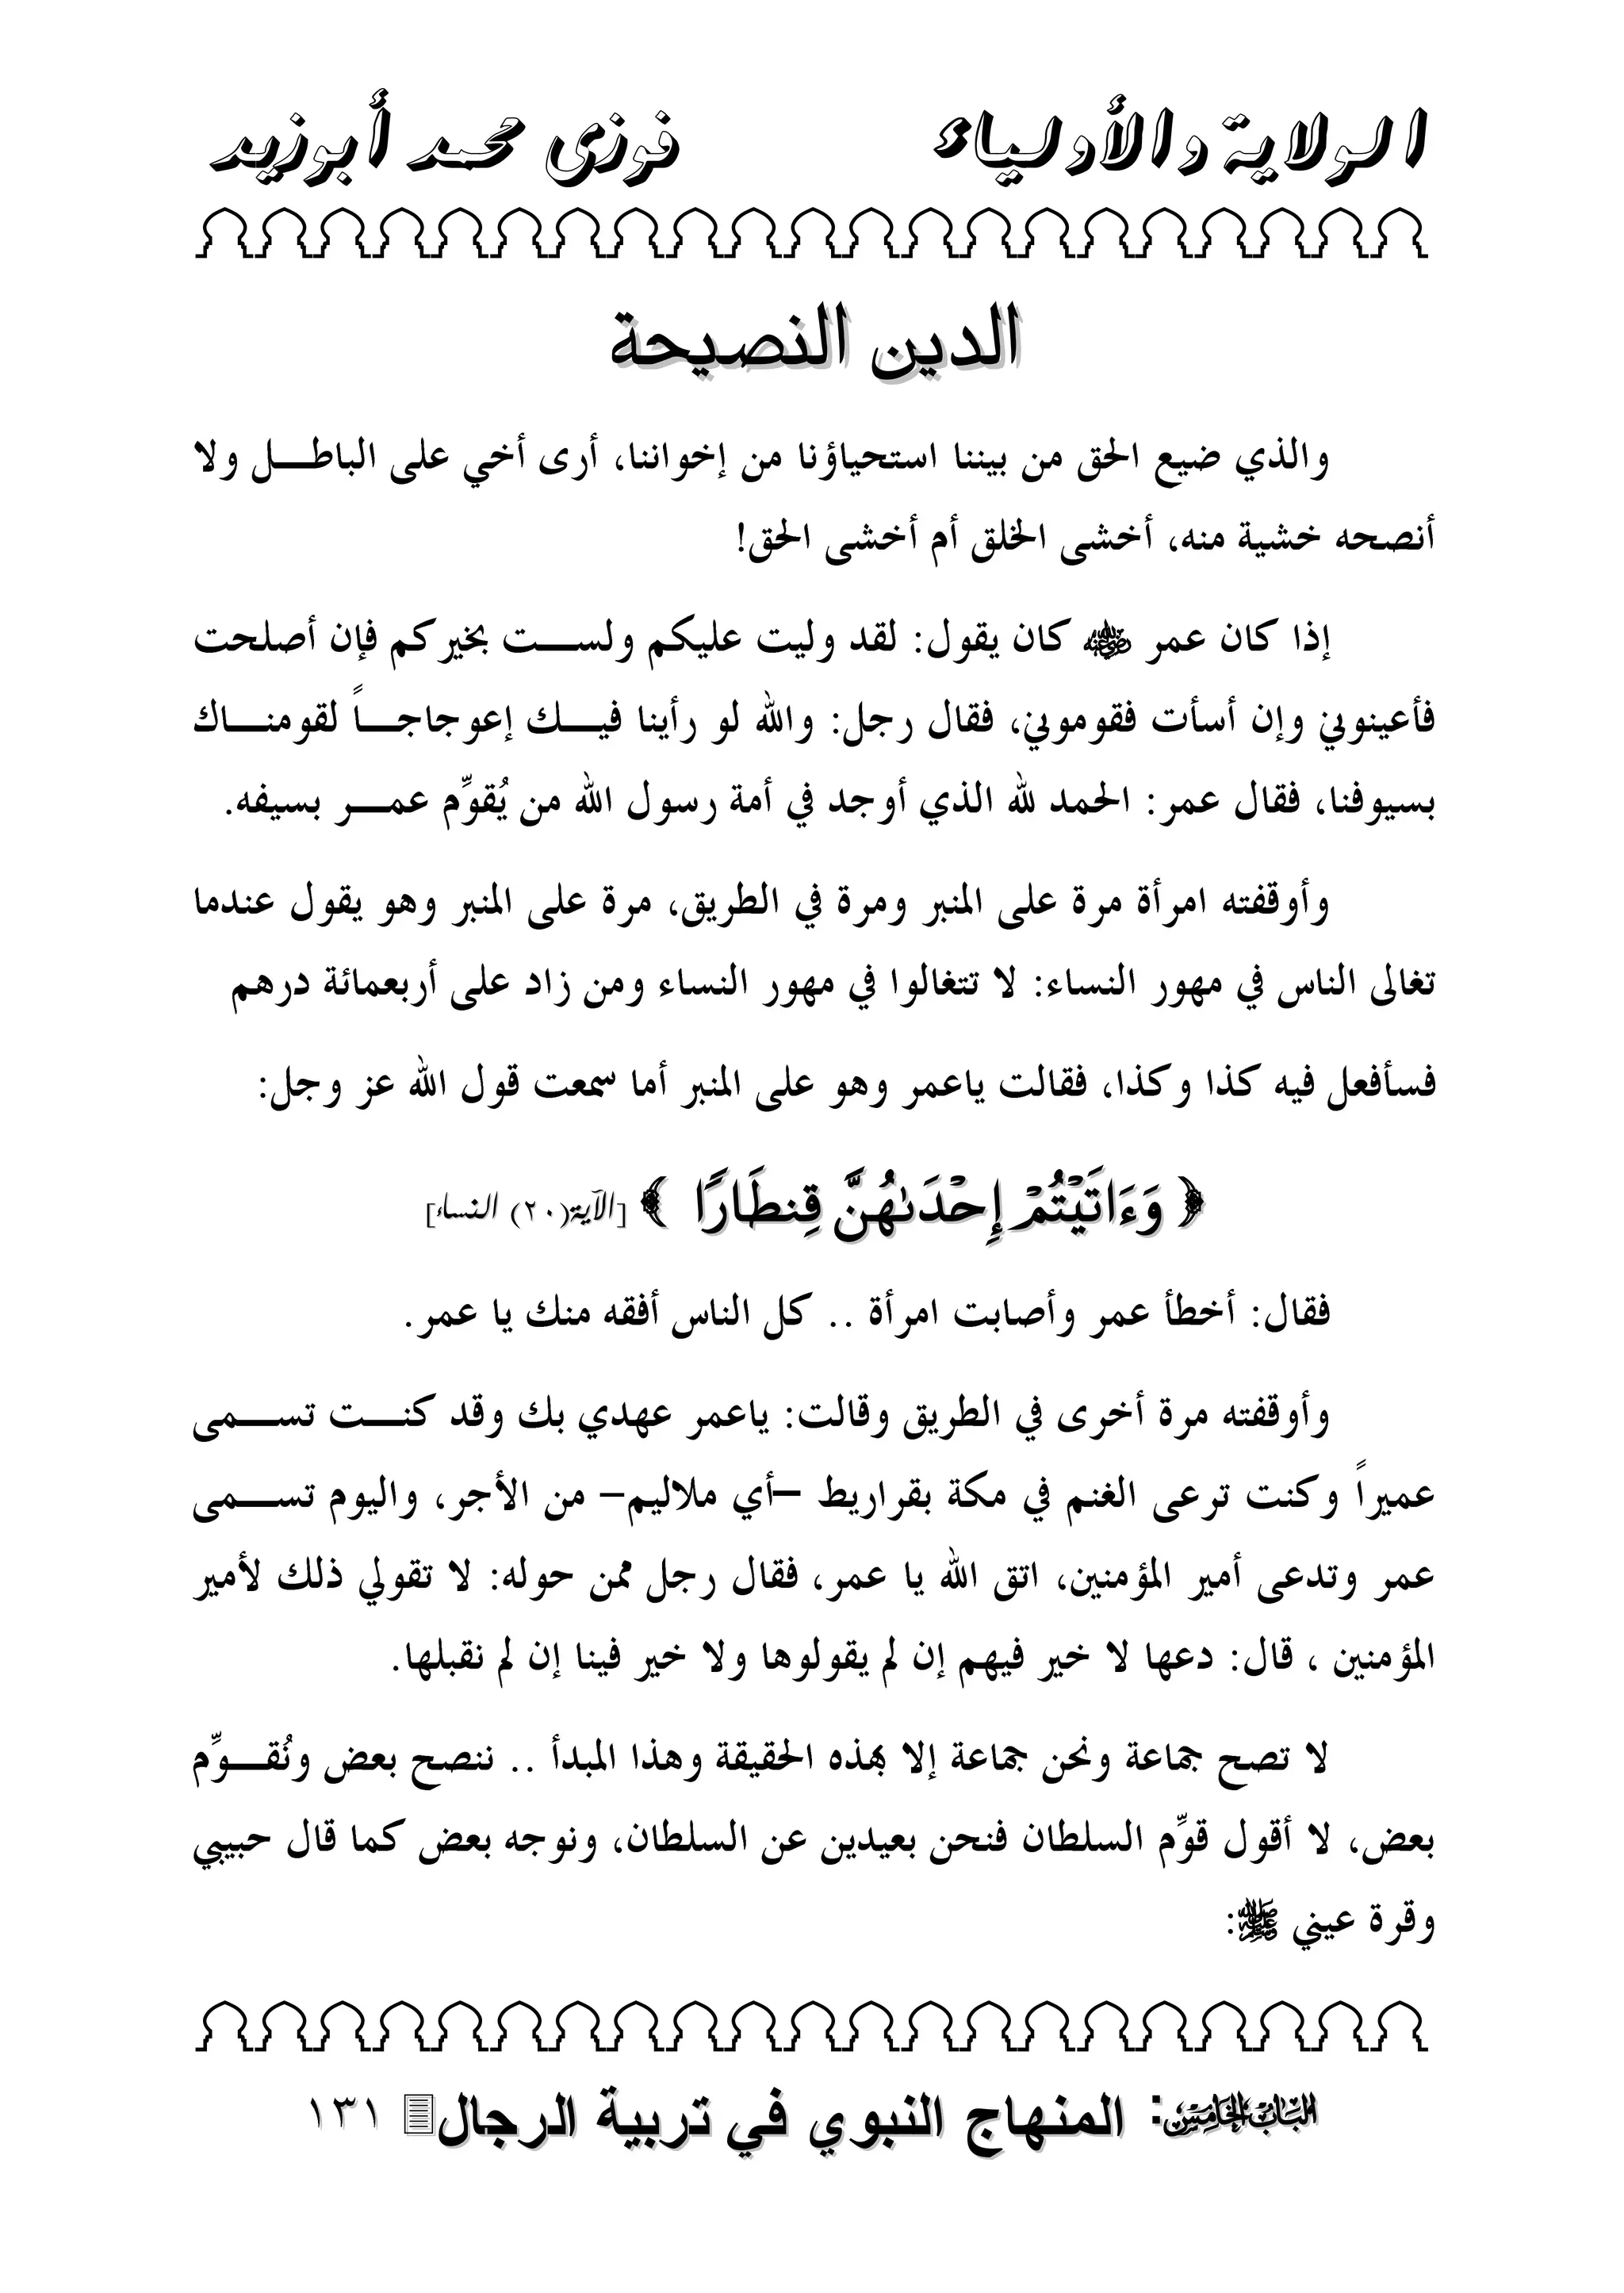 الولاية والأولياء فوزى محمد أبوزيد
الدين النصيحة
والذي ضيع الحق من بيننا استحياؤنا من إخواننا، أرى أخي على الباطل ولا
أنصحه خشية منه، أخشى الخلق أم أخشى الحق!
إذا كان عمر ﷺ كان يقول: لقد وليت عليكم ولست بخيركم فإن أصلحت
فأعينوني وإن أسأت فقوموني، فقال رجل: والله لو رأينا فيك إعوجاجاً لقومناك
بسيوفنا، فقال عمر: الحمد لله الذي أوجد في أمة رسول الله من يُقوِّم عمر بسيفه.
وأوقفته امرأة مرة على المنبر ومرة في الطريق، مرة على المنبر وهو يقول عندما
تغالى الناس في مهور النساء: لا تتغالوا في مهور النساء ومن زاد على أربعمائة درهم
فسأفعل فيه كذا وكذا، فقالت ياعمر وهو على المنبر أما سمعت قول الله عز وجل:
﴿ وَءَاتَيْتُمْ إِحْدَىٰهُنَّ قِنطَارًا ﴾ [الآية(٢٠) النساء]
فقال: أخطأ عمر وأصابت امرأة .. كل الناس أفقه منك يا عمر.
وأوقفته مرة أخرى في الطريق وقالت: ياعمر عهدي بك وقد كنت تسمى
عميراً وكنت ترعى الغنم في مكة بقراريط –أي ملاليم– من الأجر، واليوم تسمى
عمر وتدعى أمير المؤمنين، اتق الله يا عمر، فقال رجل ممن حوله: لا تقولي ذلك لأمير
المؤمنين ، قال: دعها لا خير فيهم إن لم يقولوها ولا خير فينا إن لم نقبلها.
لا تصح جماعة ونحن جماعة إلا بهذه الحقيقة وهذا المبدأ .. ننصح بعض ونُقوِّم
بعض، لا أقول قوِّم السلطان فنحن بعيدين عن السلطان، ونوجه بعض كما قال حبيبي
وقرة عيني ﷺ:
الباب الخامس: المنهاج النبوي في تربية الرجال ١٣١